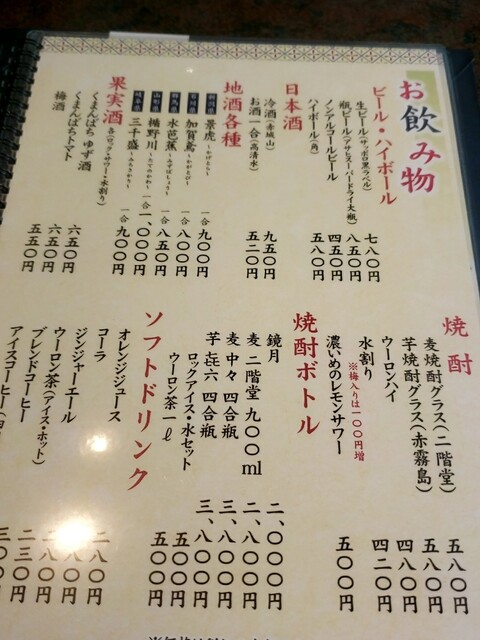 お飲み物
ビール・ハイボール
生ビール(サッポロ黒ラベル) 七八〇円
瓶ビール(アサヒスーパードライ大瓶) 八五〇円
ノンアルコールビール 四五〇円
ハイボール(角) 五八〇円
日本酒
冷酒(赤城山) 九五〇円
お酒 一合(高清水) 五二〇円
地酒各種
新潟県 景虎~かげとら~ 一合 九〇〇円
石川県 加賀鳶~かがとび~ 一合 八〇〇円
群馬県 水芭蕉~みずばしょう~ 一合 八五〇円
山形県 楯野川~たてのかわ~ 一合 一、〇〇〇円
岐阜県 三千盛~みちさかり~ 一合 九〇〇円
果実酒 各(ロック・サワー・水割り)
くまんばち ゆず酒 六五〇円
くまんばちトマト 六五〇円
梅酒 五五〇円
焼酎
麦焼酎グラス(二階堂) 五八〇円
芋焼酎グラス(赤霧島) 五八〇円
ウーロンハイ 四八〇円
水割り 四二〇円
※梅入りは一〇〇円増
濃いめのレモンサワー 五〇〇円
焼酎ボトル
鏡月 二、〇〇〇円
麦 二階堂 九〇〇ml 二、八〇〇円
麦 中々 四合瓶 三、八〇〇円
芋 㐂六 四合瓶 三、八〇〇円
ロックアイス・水セット 五〇〇円
ウーロン茶一ℓ 五〇〇円
ソフトドリンク
オレンジジュース 二八〇円
コーラ 二八〇円
ジンジャーエール 二八〇円
ウーロン茶(アイス・ホット) 二八〇円
ブレンドコーヒー 二三〇円
アイスコーヒー 三〇〇円